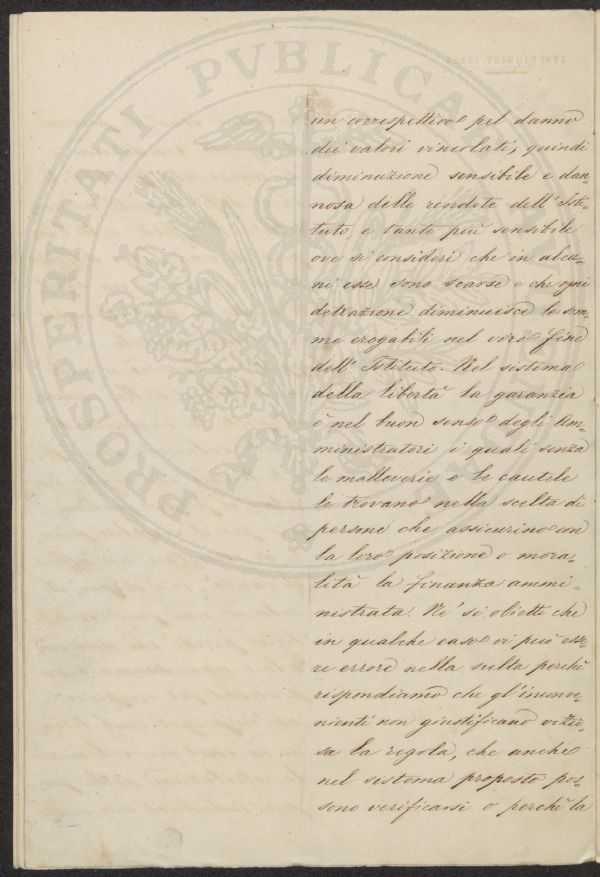 PROSPERITATI PVBLICAE
un correspettivo pel danno
dei valori vincolati, quindi
diminuzione sensibile e dan-
nosa delle rendite dell'Isti-
tuto, e tanto più sensibile
ove si consideri che in alcu-
ni esse sono scarse e che ogni
detrazione diminuisce le som-
me erogabili nel vero fine
dell'Istituto. Nel sistema
della libertà la garanzia
è nel buon senso degli Am-
ministratori i quali senza
le malleverie e le cautele
le trovano nella scelta di
persone che assicurino con
la loro posizione o mora-
lità la finanza ammi-
nistrata. Né si obietti che
in qualche caso vi può esse-
re errore nella scelta perché
rispondiamo che gl'inconve-
nienti non giustificano
la regola, che anche
nel sistema proposto pos-
sono verificarsi o perché la